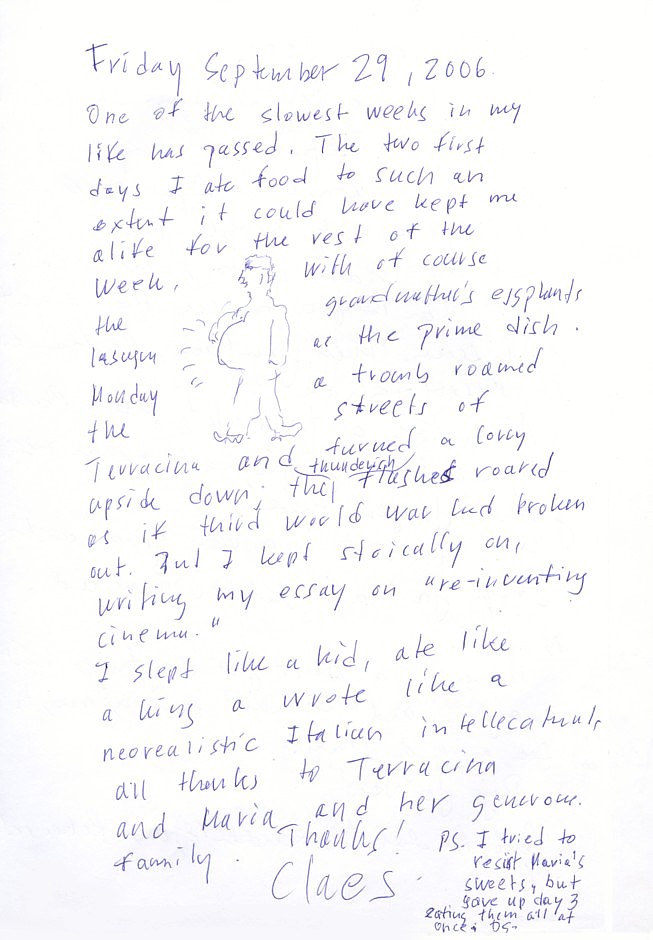 Friday September 29, 2006.
One of the slowest weeks in my
life has passed. The two first
days I ate food to such an
extent it could have kept me
alife for the rest of the
week, with of course
the grandmother's eggplants
lasagn as the prime dish.
Monday a tromb roamed
the streets of
Terracina and turned a lorry
upside down; the thunderish flashes roared
as if third world war had broken
out. But I kept stoically on,
writing my essay on "re-inventing
cinema."
I slept like a kid, ate like
a king a wrote like a
neorealistic Italian intellecatual,
all thanks to Terracina
and Maria and her generous
family. Thanks!
Claes.
PS. I tried to
resist Maria's
sweets, but
gave up day 3
eating them all at
once. DS.